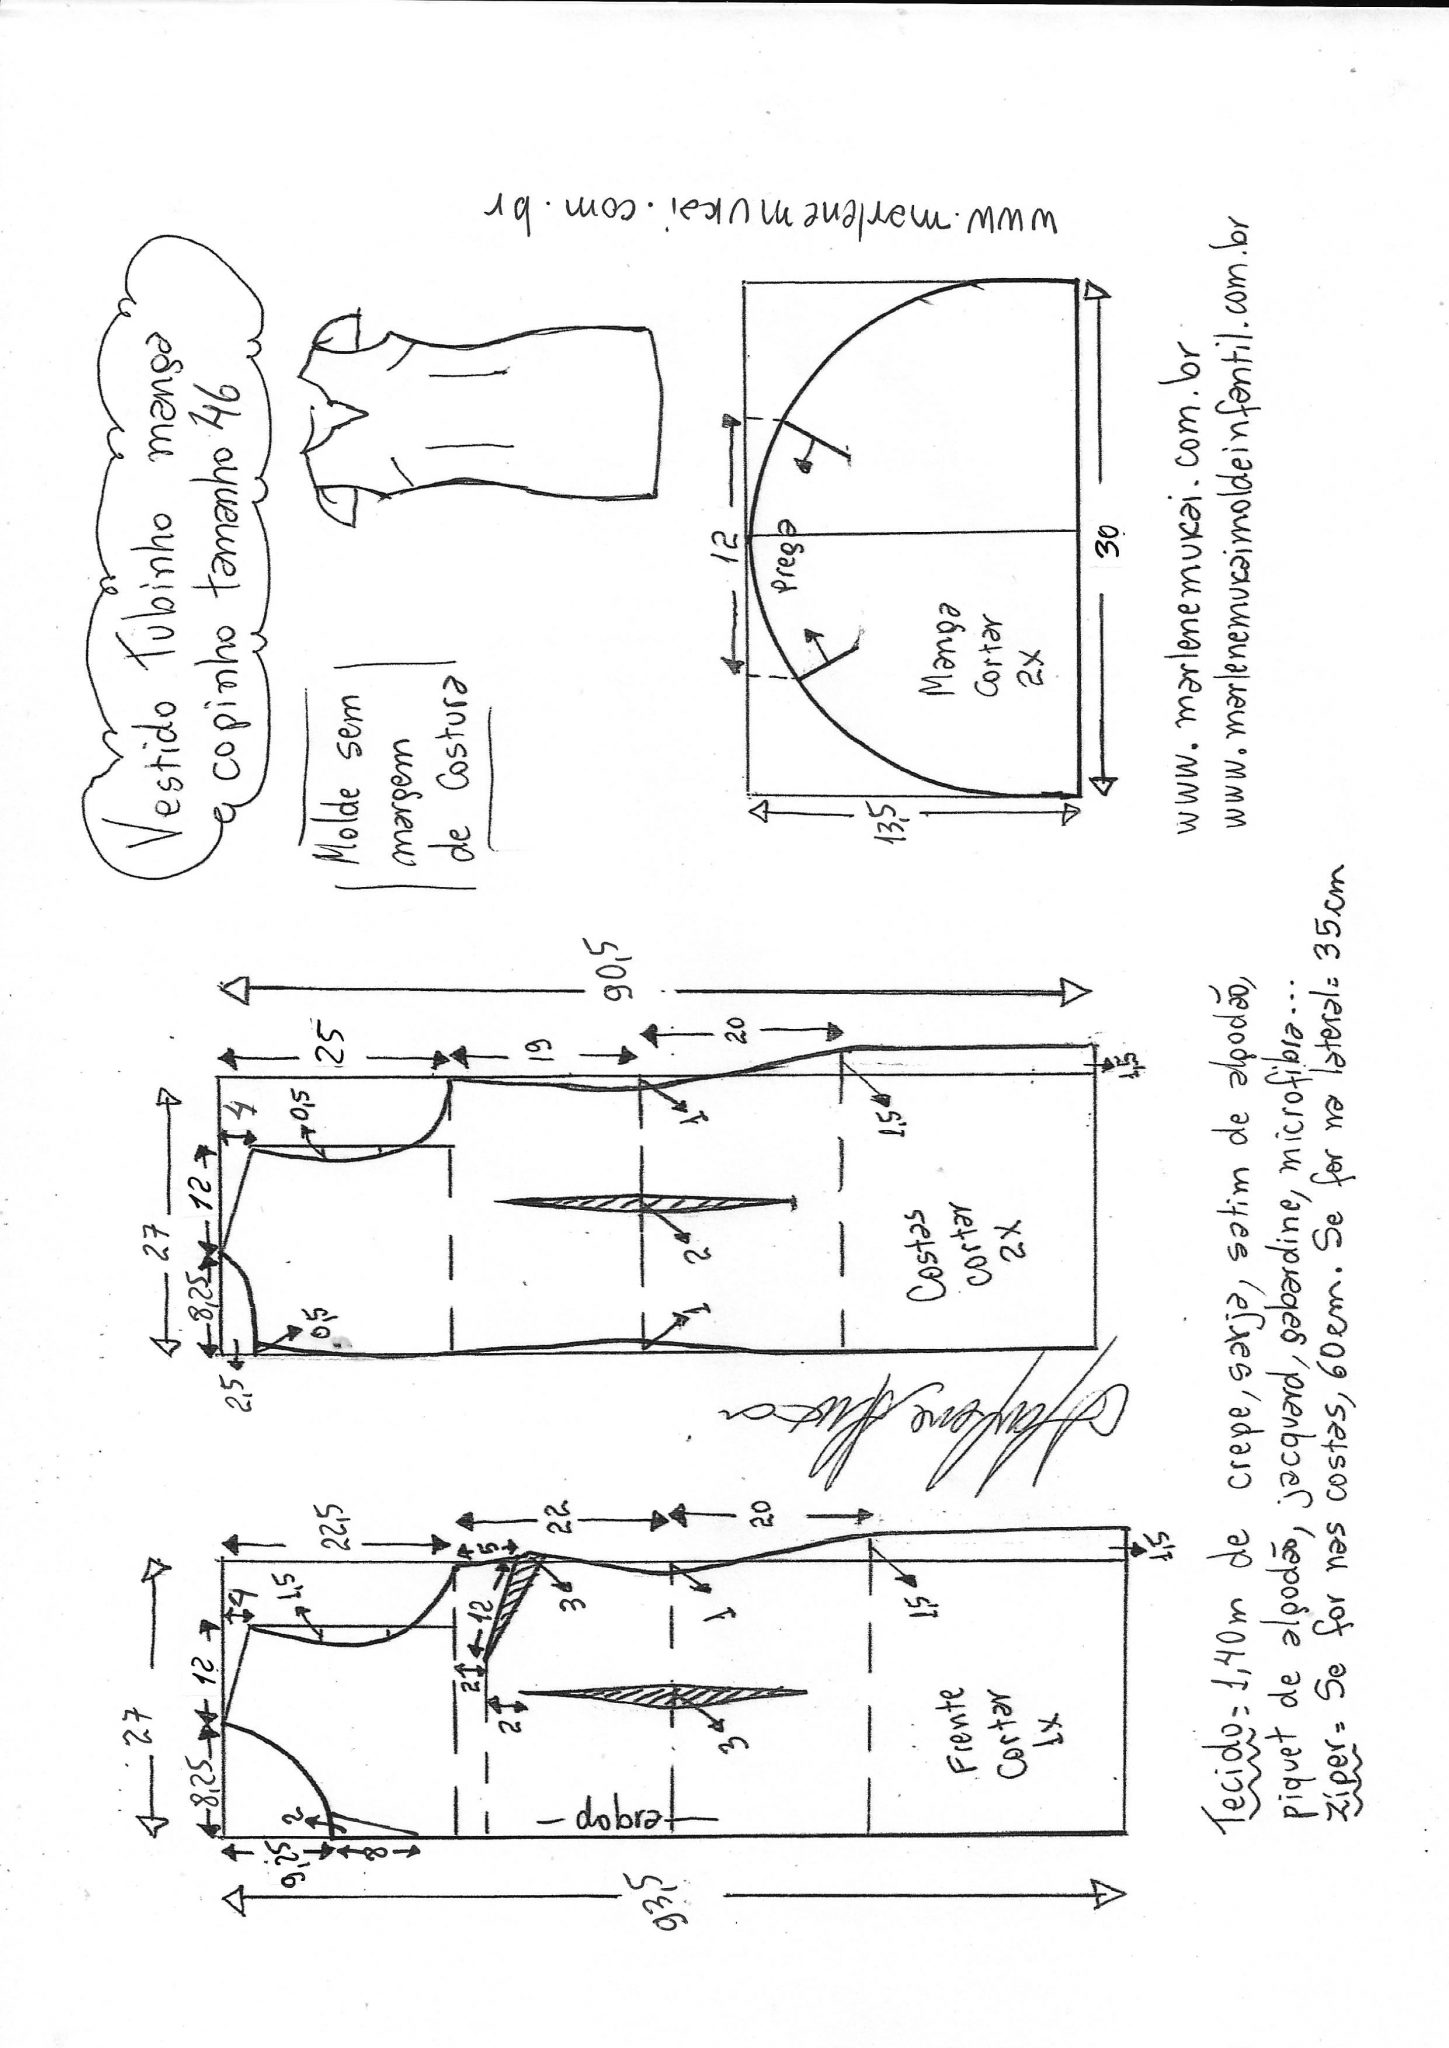 Vestido Tubinho manga
copinho tamanho 46
Molde sem
margem
de Costura
27
8,25
12
4
22,5
1,5
9,25
2
8
4
5
12
3
2
2
22
1
3
20
1,5
dobra
Frente
Cortar
1x
1,5
93,5
27
8,25
12
4
25
0,5
2,5
0,5
19
1
2
1
20
1,5
Costas
cortar
2x
1,5
90,5
12
Prega
Manga
Cortar
2x
13,5
30
www.marlenemukai.com.br
www.marlenemukai.com.br
www.marlenemukaimoldeinfantil.com.br
Tecido= 1,40m de crepe, sarja, setim de algodão,
piquet de algodão, Jacquard, gabardine, microfibra...
Zíper= Se for nas costas, 60cm. Se for na lateral= 35cm